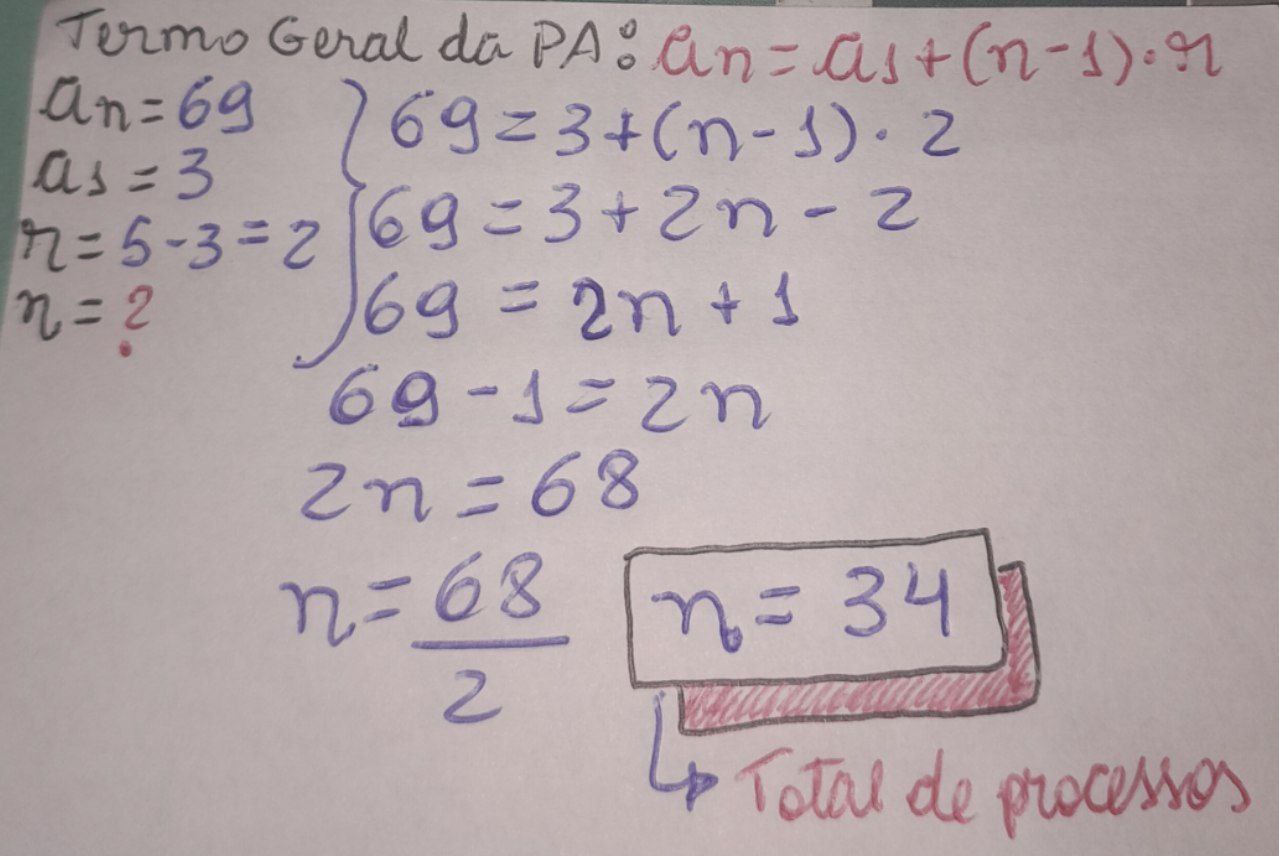 Termo Geral da PA: an = a1 + (n-1)·r
an = 69
a1 = 3
r = 5-3 = 2
n = ?
69 = 3 + (n-1)·2
69 = 3 + 2n - 2
69 = 2n + 1
69 - 1 = 2n
2n = 68
n = 68/2
n = 34
Total de processos